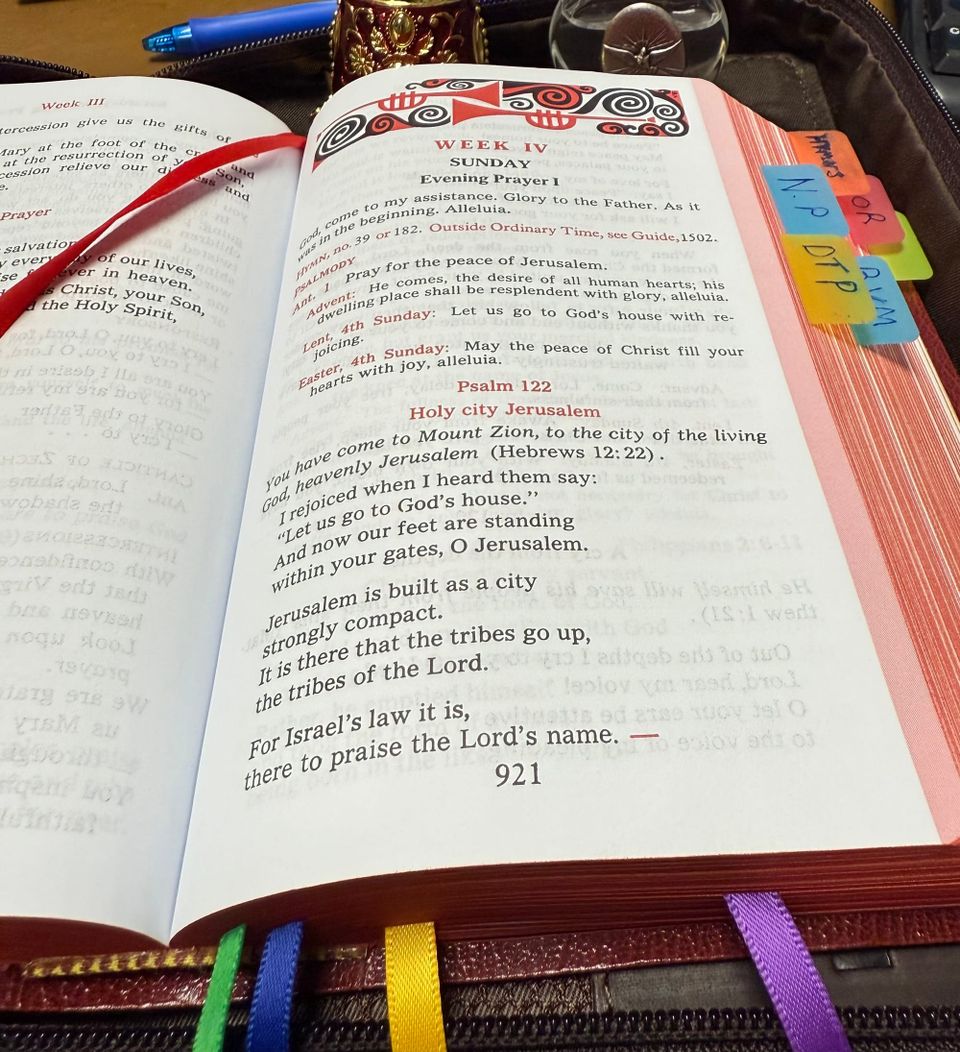 Week III
tercession give us the gifts of
Mary at the foot of the
at the resurrection of Son,
cession relieve our and
Prayer
salvation
every of our lives,
ever in heaven.
Christ, your Son,
the Holy Spirit,
WEEK IV
SUNDAY
Evening Prayer I
God, come to my assistance. Glory to the Father. As it
was in the beginning. Alleluia.
HYMN, no. 39 or 182. Outside Ordinary Time, see Guide, 1502.
PSALMODY
Ant. 1 Pray for the peace of Jerusalem.
Advent: He comes, the desire of all human hearts; his
dwelling place shall be resplendent with glory, alleluia.
Lent, 4th Sunday: Let us go to God's house with re-
joicing.
Easter, 4th Sunday: May the peace of Christ fill your
hearts with joy, alleluia.
Psalm 122
Holy city Jerusalem
You have come to Mount Zion, to the city of the living
God, heavenly Jerusalem (Hebrews 12:22).
I rejoiced when I heard them say:
“Let us go to God's house.”
And now our feet are standing
within your gates, O Jerusalem.
Jerusalem is built as a city
strongly compact.
It is there that the tribes go up,
the tribes of the Lord.
For Israel's law it is,
there to praise the Lord's name. —
921
N.P
OR
DTP
BVM